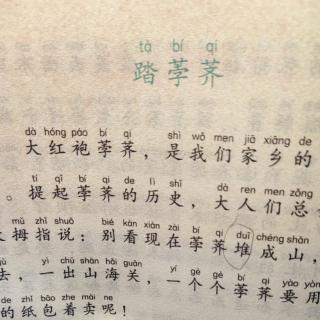 tà bí qi
踏荸荠
dà hóng páo bí qi shì wǒ men jiā xiāng de
大红袍荸荠，是我们家乡的
tí qǐ bí qi de lì shǐ dà ren men zǒng
。提起荸荠的历史，大人们总
mǔ zhǐ shuō bié kàn xiàn zài bí qi duī chéng shān
拇指说：别看现在荸荠堆成山，
yì chū shān hǎi guān yí gè gè bí qi yào yòng
去，一出山海关，一个个荸荠要用
de zhǐ bāo zhe mài ne
的纸包着卖呢！